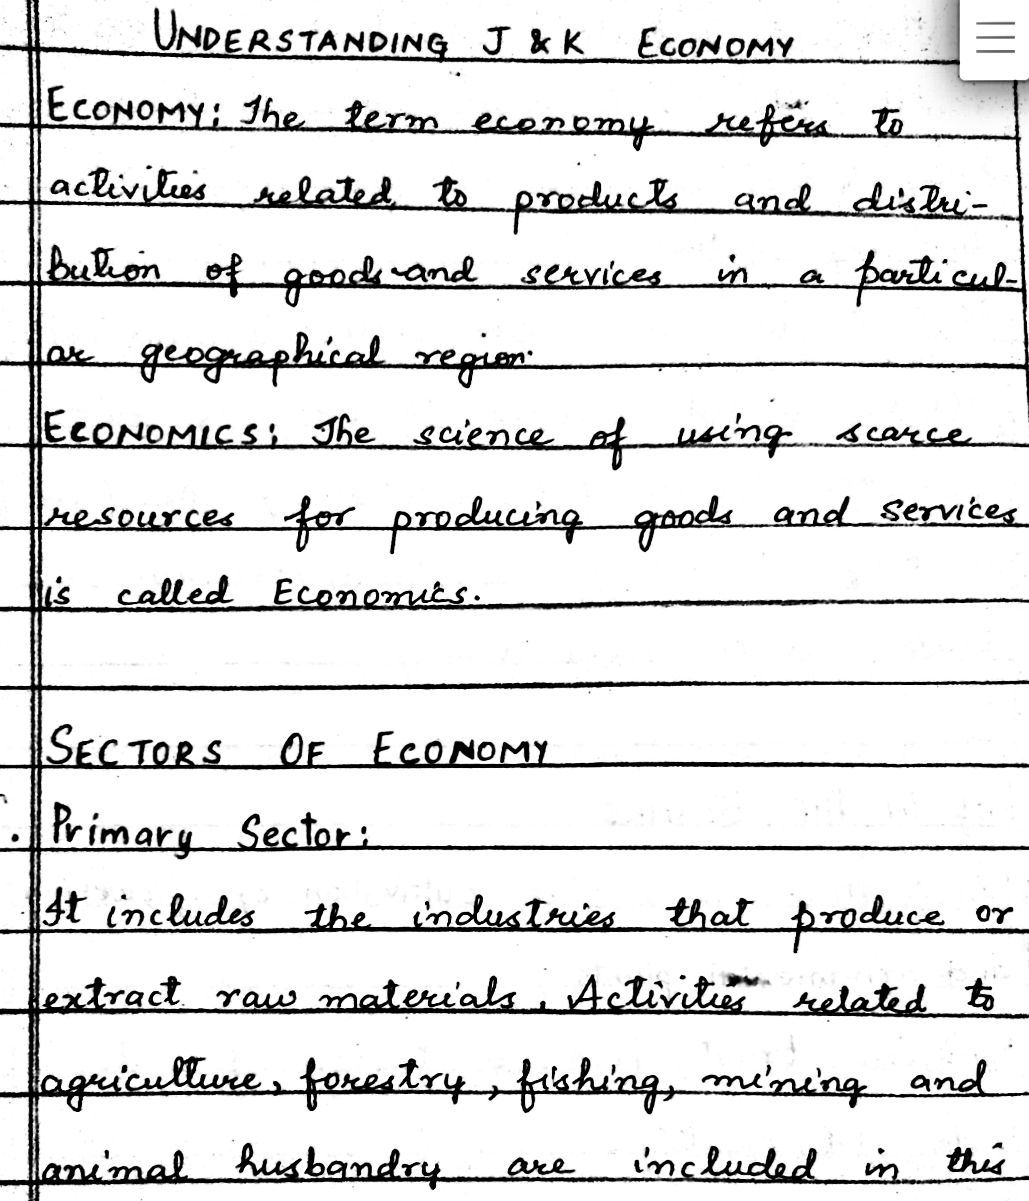 UNDERSTANDING J & K ECONOMY
ECONOMY: The term economy refers to
activities related to products and distri-
bution of goods and services in a particul-
ar geographical region.
ECONOMICS: The science of using scarce
resources for producing goods and services
is called Economics.
SECTORS OF ECONOMY
. Primary Sector:
It includes the industries that produce or
extract raw materials. Activities related to
agriculture, forestry, fishing, mining and
animal husbandry are included in this